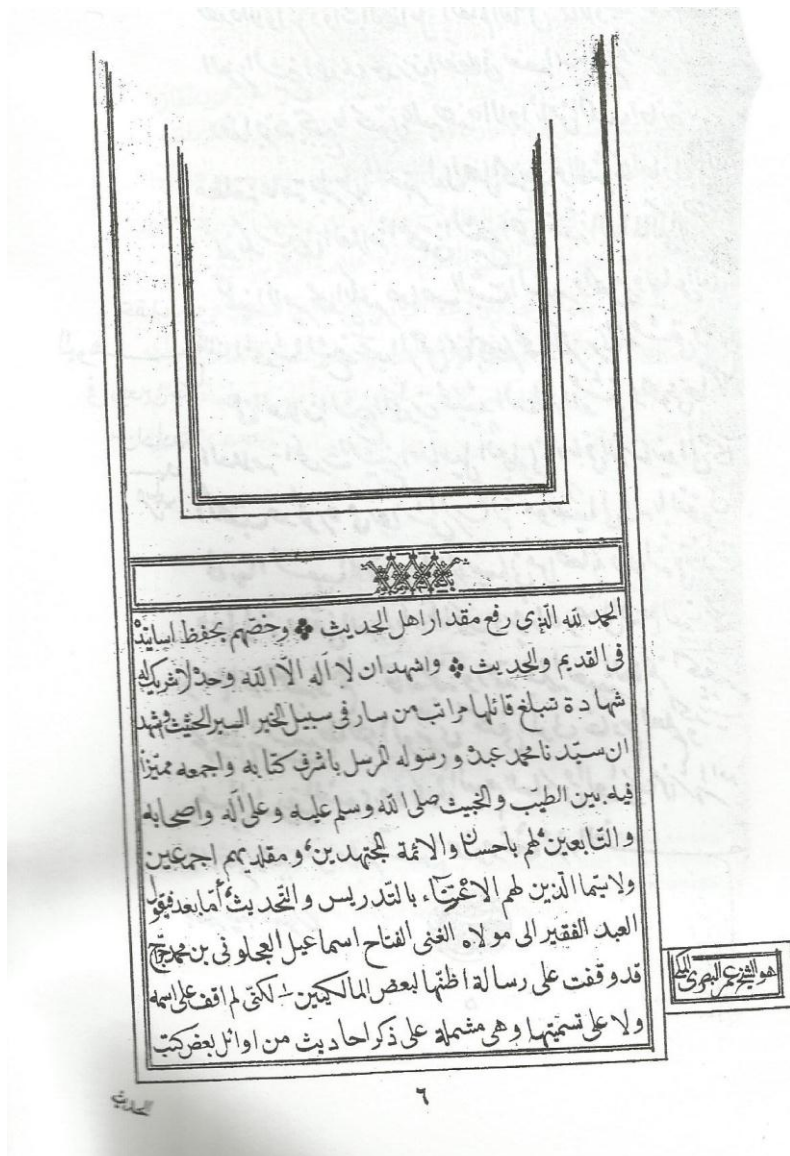 الحمد لله الذى رفع مقدار اهل الحديث ❖ وخصّهم بحفظ اسانيد
فى القديم والحديث ❖ واشهد ان لا اله الّا الله وحده لا شريك له
شهادة تبلغ قائلها مراتب من سار فى سبيل الخير السير الحثيث واشهد
ان سيّدنا محمد عبده ورسوله المرسل باشرف كتابه واجمعه مميّزا
فيه بين الطيّب والخبيث صلى الله وسلم عليه وعلى آله واصحابه
والتّابعين لهم باحسان والائمة المجتهدين ومقلديهم اجمعين
ولا سيّما الذين لهم الاعتناء بالتّدريس والتّحديث أمّا بعد فيقول
العبد الفقير الى مولاه الغنى الفتاح اسماعيل العجلونى بن محمد جرّاح
قد وقفت على رسالة اظنّها لبعض المالكيين لكنّى لم اقف على اسمه
ولا على تسميتها وهى مشتملة على ذكر احاديث من اوائل بعض كتب
هو الشيخ عمر البصرى المكى
٦
الحديث